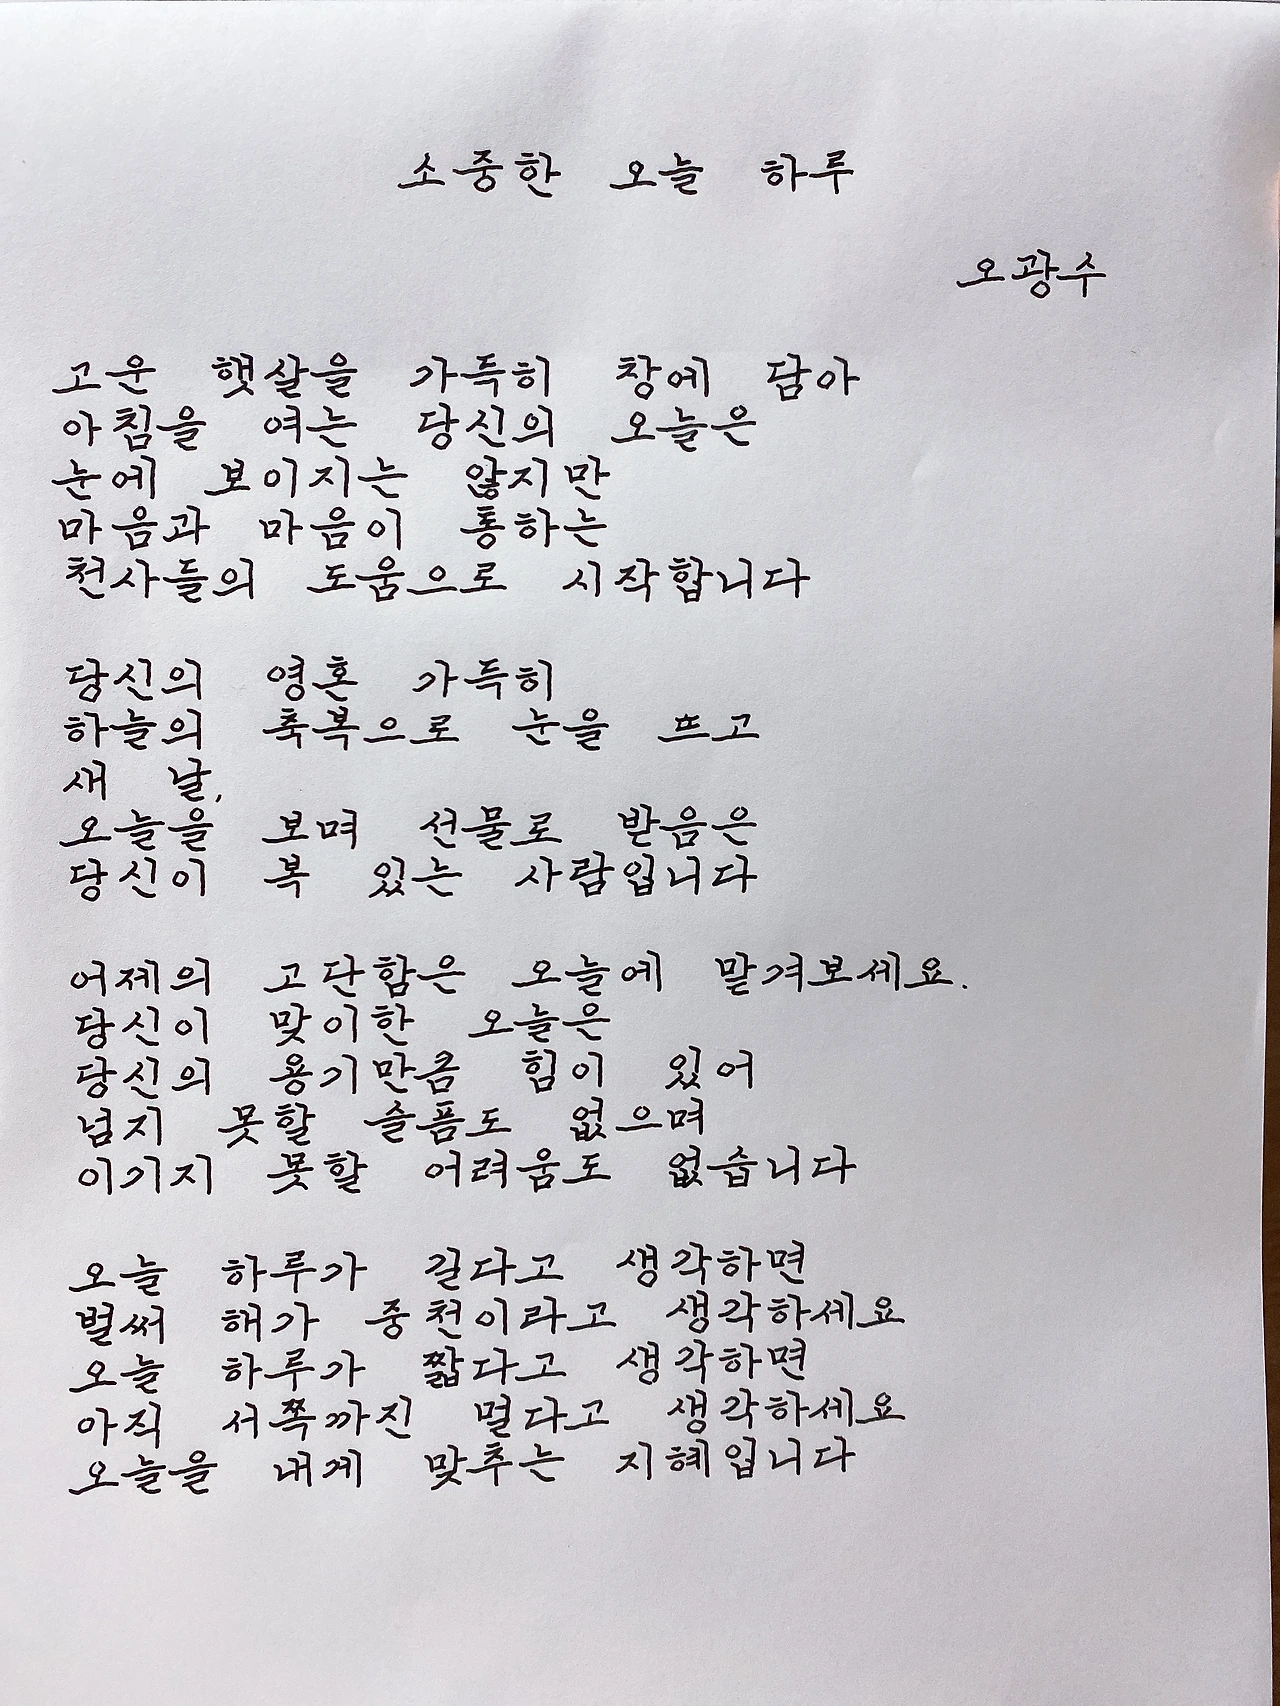 소중한 오늘 하루
오광수
고운 햇살을 가득히 창에 담아
아침을 여는 당신의 오늘은
눈에 보이지는 않지만
마음과 마음이 통하는
천사들의 도움으로 시작합니다
당신의 영혼 가득히
하늘의 축복으로 눈을 뜨고
새 날,
오늘을 보며 선물로 받음은
당신이 복 있는 사람입니다
어제의 고단함은 오늘에 맡겨보세요.
당신이 맞이한 오늘은
당신의 용기만큼 힘이 있어
넘지 못할 슬픔도 없으며
이기지 못할 어려움도 없습니다
오늘 하루가 길다고 생각하면
벌써 해가 중천이라고 생각하세요
오늘 하루가 짧다고 생각하면
아직 서쪽까진 멀다고 생각하세요
오늘을 내게 맞추는 지혜입니다